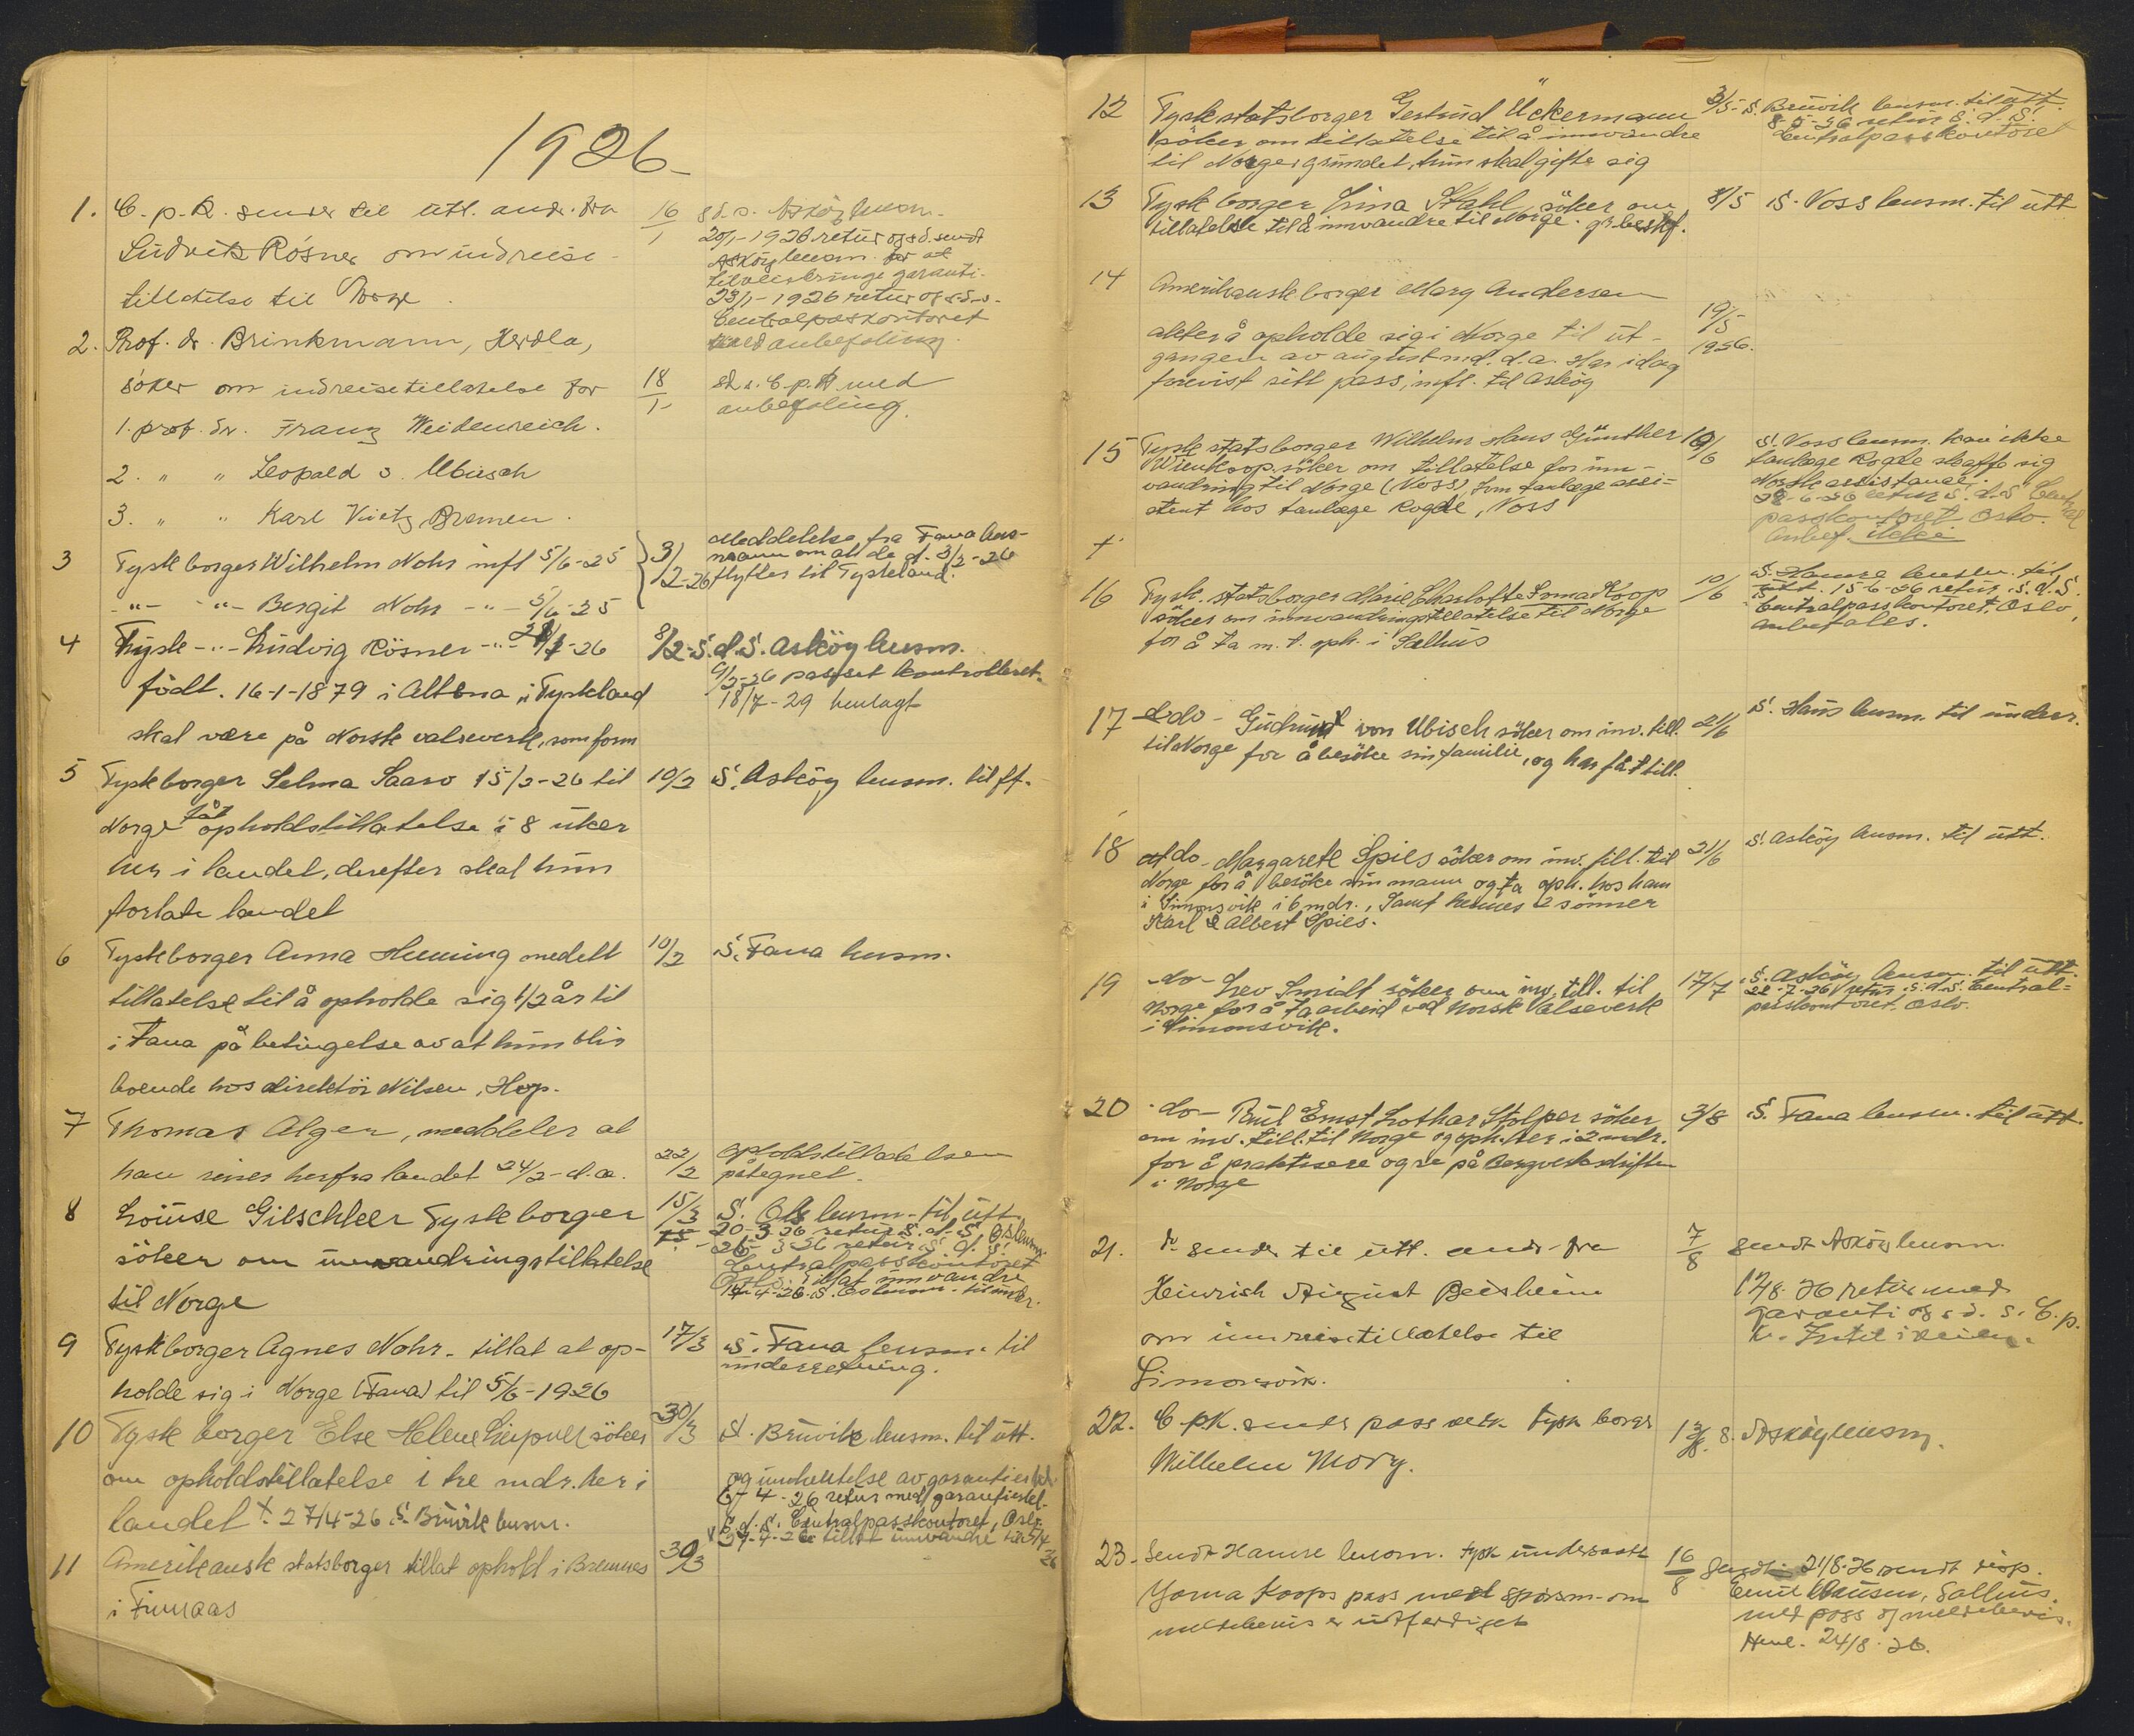 1926-
1. C. p. K. sender til utt. andr. fra
Ludvik Rösner om indreise-
tilladelse til Norge.
16/1 s.d.s. Asköy lensm.
20/1-1926 retur og s.d. sendt
Asköy lensm. for at
tilveiebringe garanti-
23/1-1926 retur og s.d.s.
Centralpaskontoret
med anbefaling.
2. Prof. dr. Brinkmann, Herdla,
söker om indreisetillatelse for
1. prof. dr. Franz Weidenreich.
2. " " Leopold v. Ubisch
3. " " Karl Vietz Bremen.
18/1- s.d.s. C.p.K med
anbefaling.
3 Tysk borger Wilhelm Nohr mfl 5/6-25
-"- -"- Bergit Nohr -"- 5/6-25
3/2-26 Meddelelse fra Fana lens-
mann om at de d. 3/2-26
flytter til Tyskland.
4 Tysk -"- Ludvig Rösner -"- 28/1-26
födt. 16-1-1879 i Altona i Tyskland
skal være på Norsk valseverk, som form
8/2- S.d.S. Asköy lensm.
9/2-26 passet kontrolleret.
18/7-29 henlagt
5 Tysk borger Selma Saaro 15/2-26 til
Norge fåt opholdstillatelse i 8 uker
her i landet, derefter skal hun
forlate landet
10/2 S. Asköy lensm. til ff.
6 Tysk borger Anna Henning meddelt
tillatelse til å opholde sig 1/2 år til
i Fana på betingelse av at hun blir
boende hos direktör Nilsen, Hop.
10/2 S. Fana lensm.
7 Thomas Alger, meddeler at
han reiser herfra landet 24/2- d.a.
22/2 Opholdstilladelsen
påtegnet.
8 Louise Gilschleer Tysk borger
söker om innvandringstillatelse
til Norge
15/3 S. Os lensm. til utt.
20-3-26 retur S.d.S. Os lensm.
26-3-26 retur S.d.S.
Centralpasskontoret
Oslo. tillat innvandre
14-4-26. S. Os lensm. til under.
9 Tysk borger Agnes Nohr- tillat at op-
holde sig i Norge (Fana) til 5/6-1926
17/3 S. Fana lensm. til
underretning.
10 Tysk borger Else Helene söker
om opholdstillatelse i tre mdr. her i
landet +. 27/4-26 S. Bruvik lensm.
30/3 S. Bruvik lensm. til utt.
og innhentelse av garantierkl.
6-4-26 retur med garantierkl.
S.d.S. Centralpasskontoret, Oslo
24-4-26 tillatt innvandre til
11 Amerikansk statsborger tillat ophold i Bremnes
i Finnaas
30/3
12 Tysk statsborger Gertrud Ückermann
söker om tillatelse til å innvandre
til Norge, grundet, hun skal gifte sig
3/5- S. Bruvik lensm. til utt.
8-5-26 retur S.d.S.
Centralpasskontoret
13 Tysk borger Lina Stahl, söker om
tillatelse til å innvandre til Norge. gr. beskf.
8/5 S. Voss lensm. til utt
14 Amerikansk borger Mary Andersen
akter å opholde sig i Norge til ut-
gangen av august md. d.a. Har idag
forevist sitt pass, mfl. til Asköy
19/5
1926.
15 Tysk statsborger Wilhelm Hans Günther
Wienkoop söker om tillatelse for inn-
vandring til Norge (Voss), som tanlæge assi-
stent hos tanlæge Rogde, Voss
10/6 S. Voss lensm. kan ikke
tanlæge Rogde skaffe sig
Norsk assistanse.
28-6-26 retur S.d.S Central
passkontoret Oslo.
Anbef. ikke
+
16 Tysk. statsborger Marie Charlotte Irma Koop
söker om innvandringstillatelse til Norge
for å ta m. t. oph. i Salhus
10/6 S. Hamre lensm. til
utt. 15-6-26 retur S.d.S.
Centralpasskontoret, Oslo,
anbefales.
17 -do- Gudrun von Ubisch söker om inv. till.
til Norge for å besöke sin familie, og har fåt till.
21/6 S. Haus lensm. til underr.
18 -do- Margarete Spies söker om inv. till. til
Norge for å besöke sin mann og ta oph. hos ham
i Simonsvik i 6 mdr., Samt hennes 2 sönner
Karl & Albert Spies.
21/6 S. Asköy lensm. til utt.
19 -do- Leo Smidt söker om inv. till. til
Norge for å ta arbeid ved Norsk Valseverk
i Simonsvik.
17/7 S. Asköy lensm. til utt.
22-7-26 retur S.d.S. Central-
passkontoret, Oslo.
20 -do- Paul Ernst Lothar Stolper söker
om inv. till. til Norge og oph. her i 2 mdr.
for å praktisere og se på Bergverksdriften
i Norge
3/8 S. Fana lensm. til utt.
21. do sender til utt. andr. fra
Heinrich August Beisheim
om innreisetillatelse til
Simonsvik.
7/8 sendt Asköy lensm.
12/8. 26 retur med
garanti og s.d. s. C.p.
22. C.pK. sender pass vedk. tysk borger
Wilhelm Mory.
13/8. s. Asköy lensm.
23. Sendt Hamre lensm. tysk undersaatt
Yorna Koops pass med spörsm. om
meldebevis er utferdiget
16/8 Sendt 21/8-26 sendt disp.
Emil Clausen, Salhus.
med pass og meldebevis.
Henl. 24/8. 26.